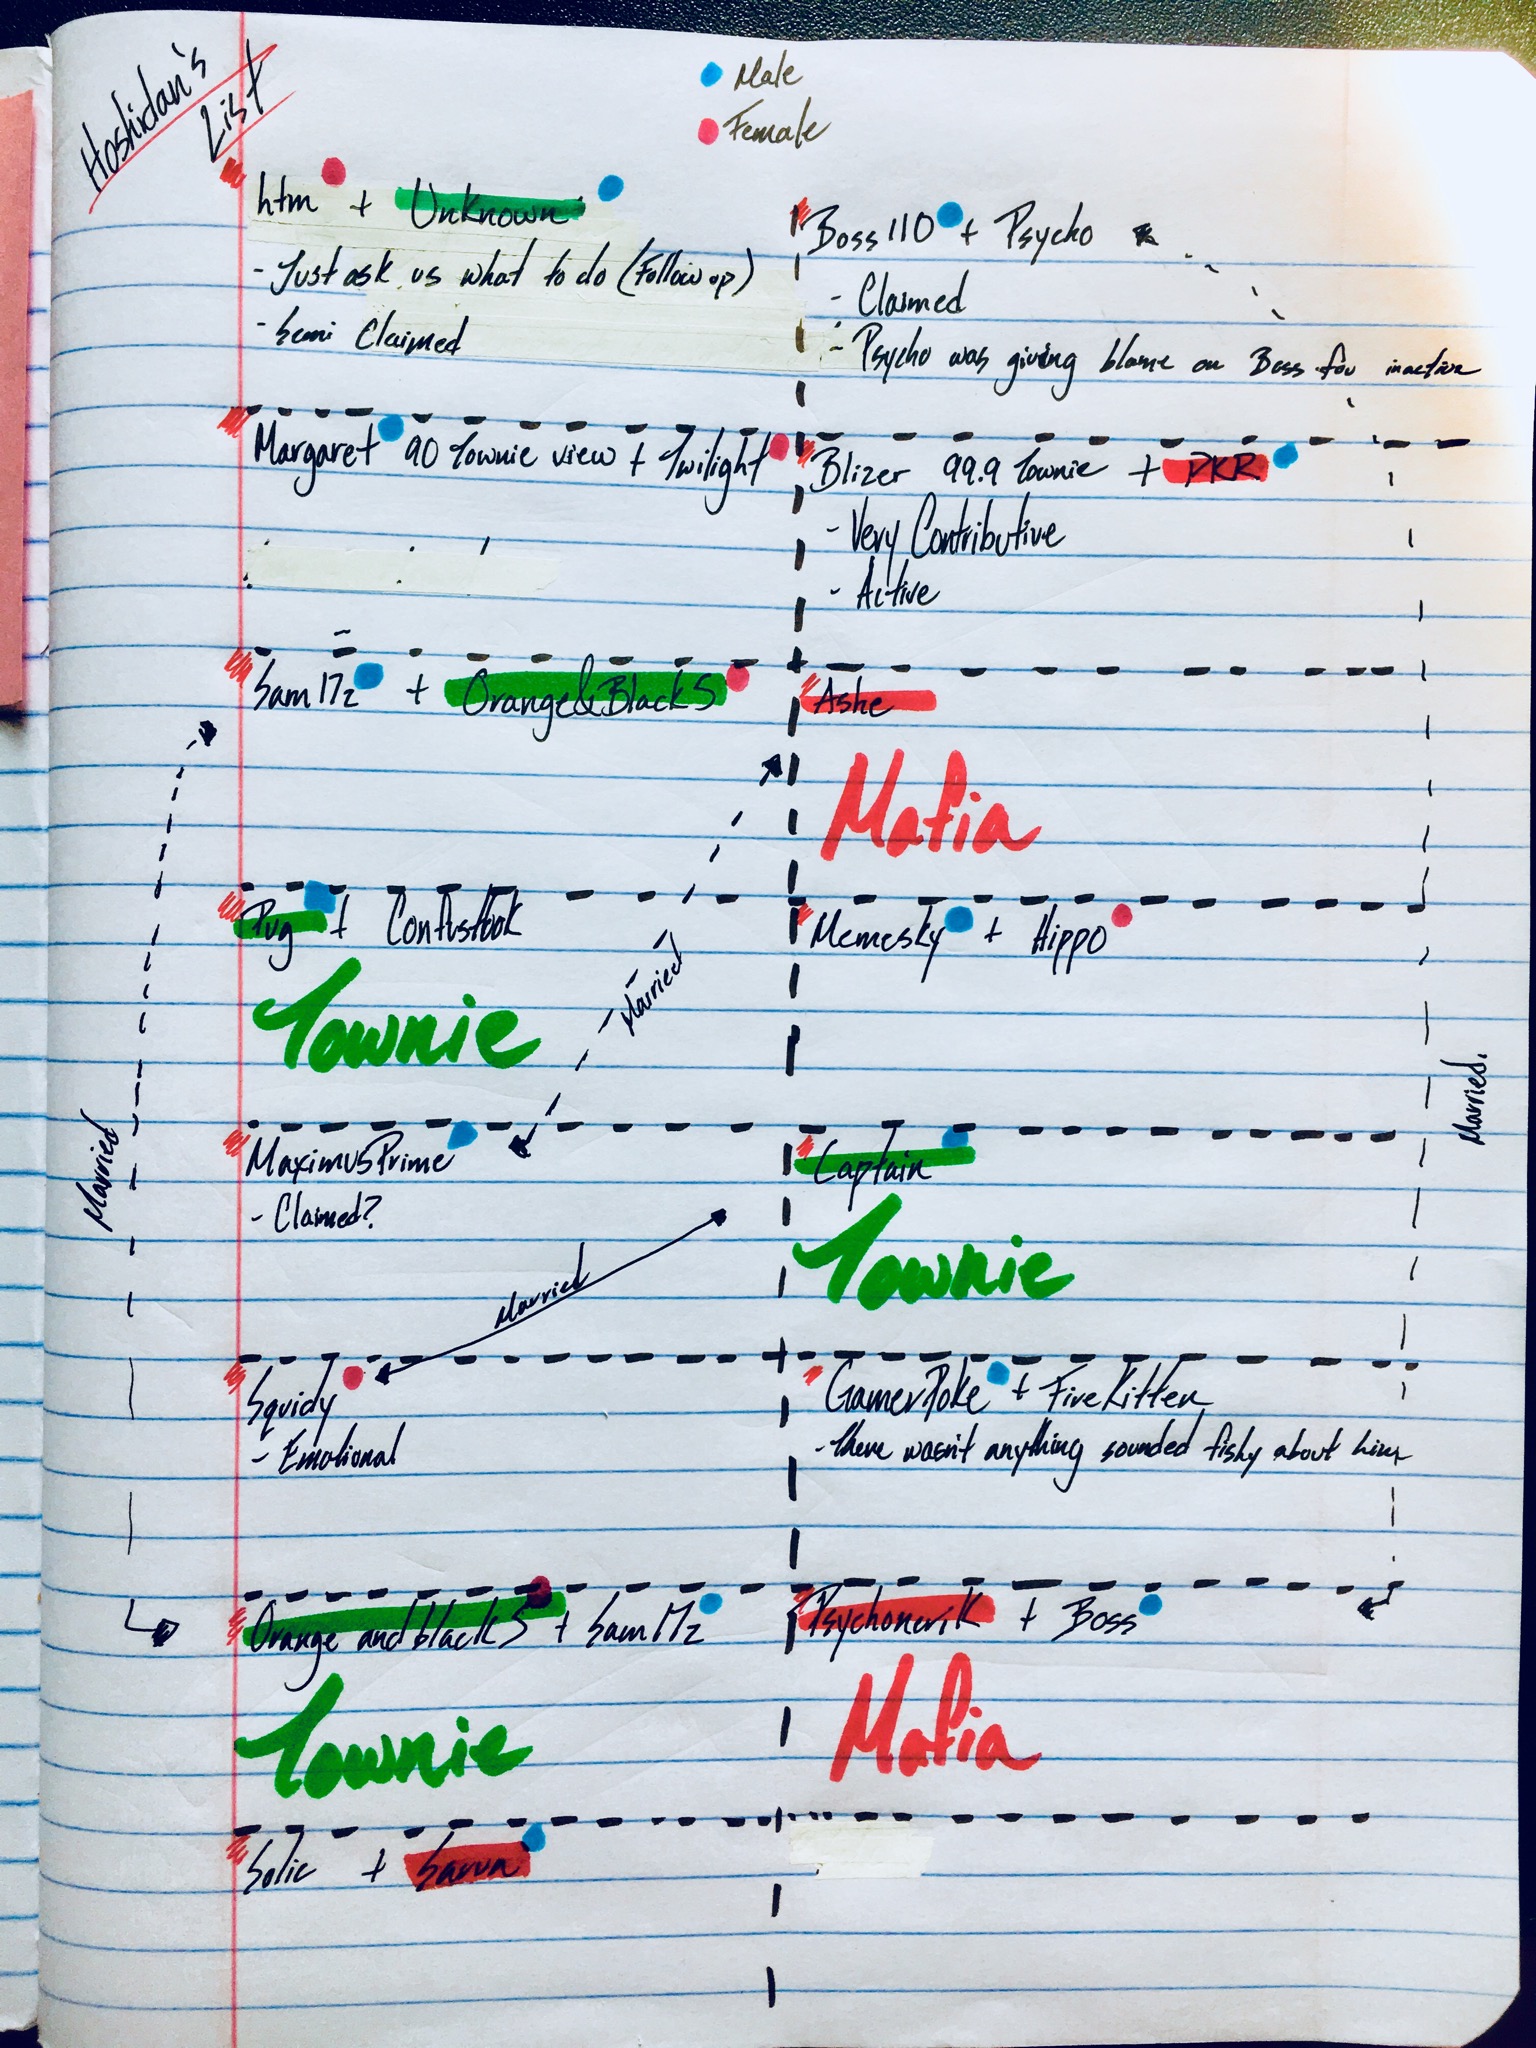 Hoshidan's
List
Male
Female
htm + Unknown
- Just ask us what to do (Follow up)
- Semi Claimed
Boss 110 + Psycho
- Claimed
- Psycho was giving blame on Boss for inactive
Margaret 90 Townie view + Twilight
Blizer 99.9 Townie + PKR
- Very Contributive
- Active
Sam17z + Orange&Black5
Ashe
Mafia
Pug +
Townie
Memesky + Hippo
Married
Married
Married.
MaximusPrime
- Claimed?
Captain
Townie
Married
Squidy
- Emotional
GamerPoke + FireKitten
- There wasn't anything sounded fishy about him
Orange and black5 + Sam17z
Townie
Psychomerik + Boss
Mafia
Solic + Sarva